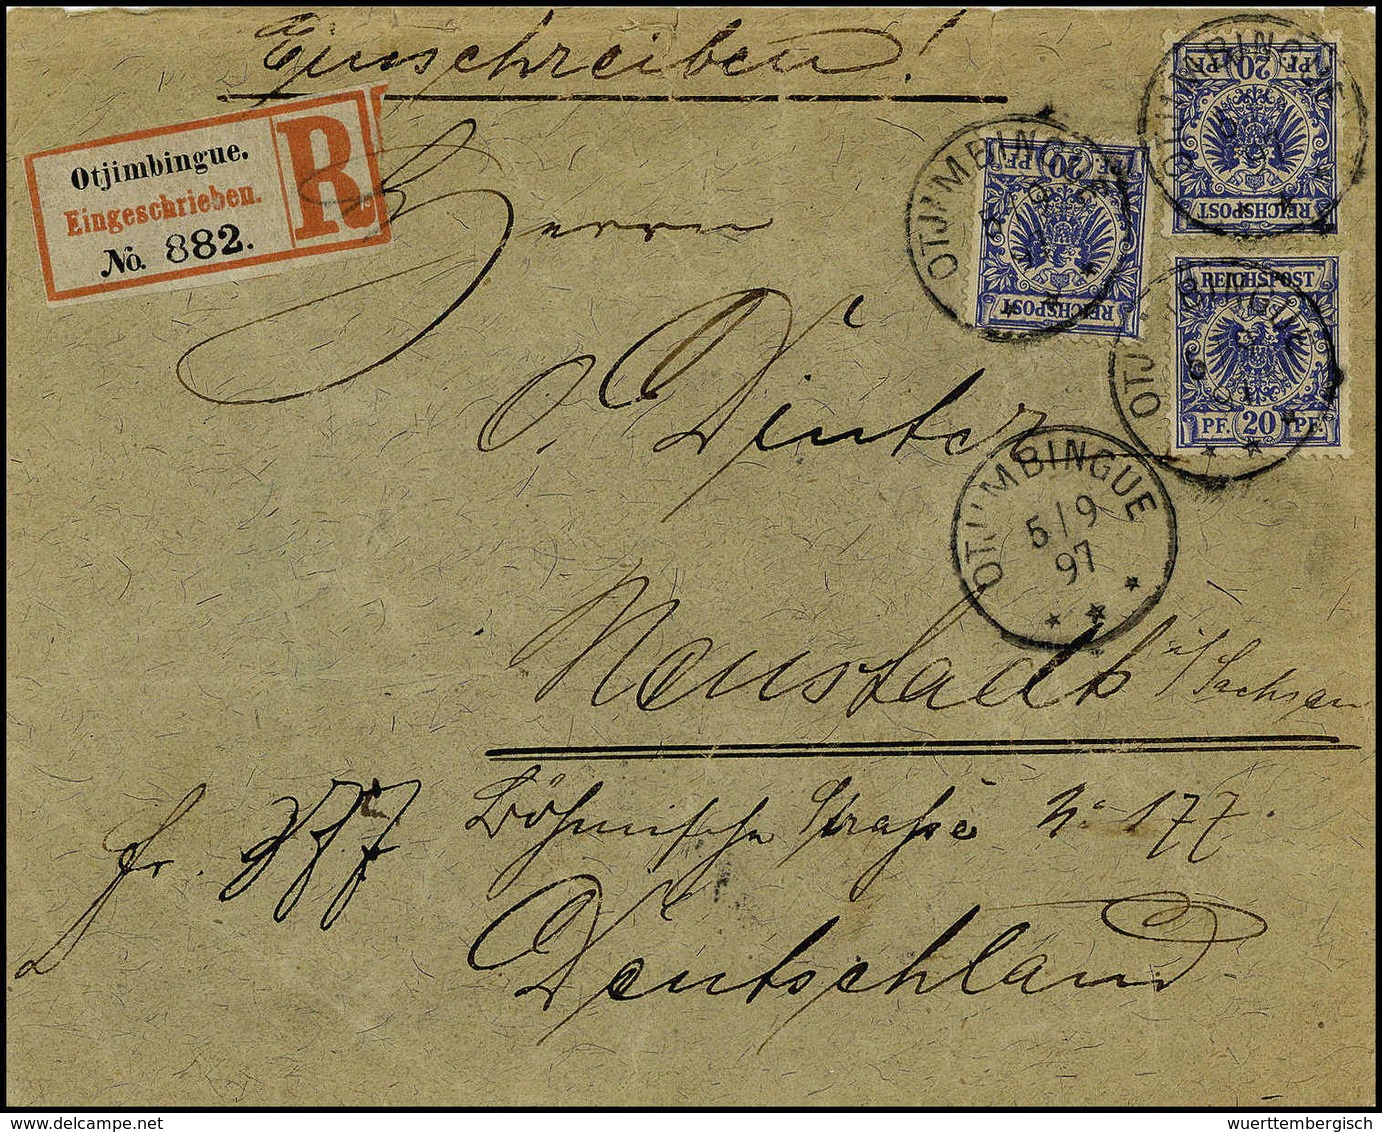 Einschreiben!
Otjimbingue.
Eingeschrieben.
No. 882.
R
Herrn
O. Dinter
Neustadt i/Sachsen
Böhmische Straße No 177.
Deutschland
fr.
PF. 20 PF.
REICHSPOST
OTJIMBINGUE
5/9
97
PF. 20 PF.
REICHSPOST
OTJIMBINGUE
REICHSPOST
PF. 20 PF.
OTJIMBINGUE
OTJIMBINGUE
5/9
97
wuerttembergisch